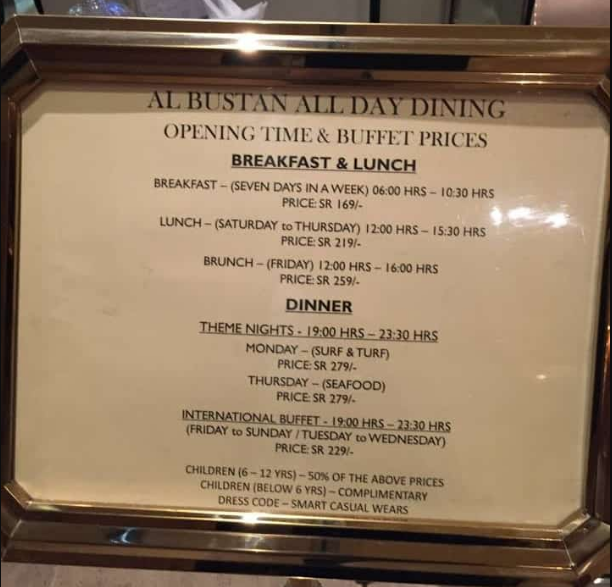 AL BUSTAN ALL DAY DINING
OPENING TIME & BUFFET PRICES
BREAKFAST & LUNCH
BREAKFAST – (SEVEN DAYS IN A WEEK) 06:00 HRS – 10:30 HRS
PRICE: SR 169/-
LUNCH – (SATURDAY to THURSDAY) 12:00 HRS – 15:30 HRS
PRICE: SR 219/-
BRUNCH – (FRIDAY) 12:00 HRS – 16:00 HRS
PRICE: SR 259/-
DINNER
THEME NIGHTS - 19:00 HRS – 23:30 HRS
MONDAY – (SURF & TURF)
PRICE: SR 279/-
THURSDAY – (SEAFOOD)
PRICE: SR 279/-
INTERNATIONAL BUFFET - 19:00 HRS – 23:30 HRS
(FRIDAY to SUNDAY / TUESDAY to WEDNESDAY)
PRICE: SR 229/-
CHILDREN (6 – 12 YRS) – 50% OF THE ABOVE PRICES
CHILDREN (BELOW 6 YRS) – COMPLIMENTARY
DRESS CODE – SMART CASUAL WEARS